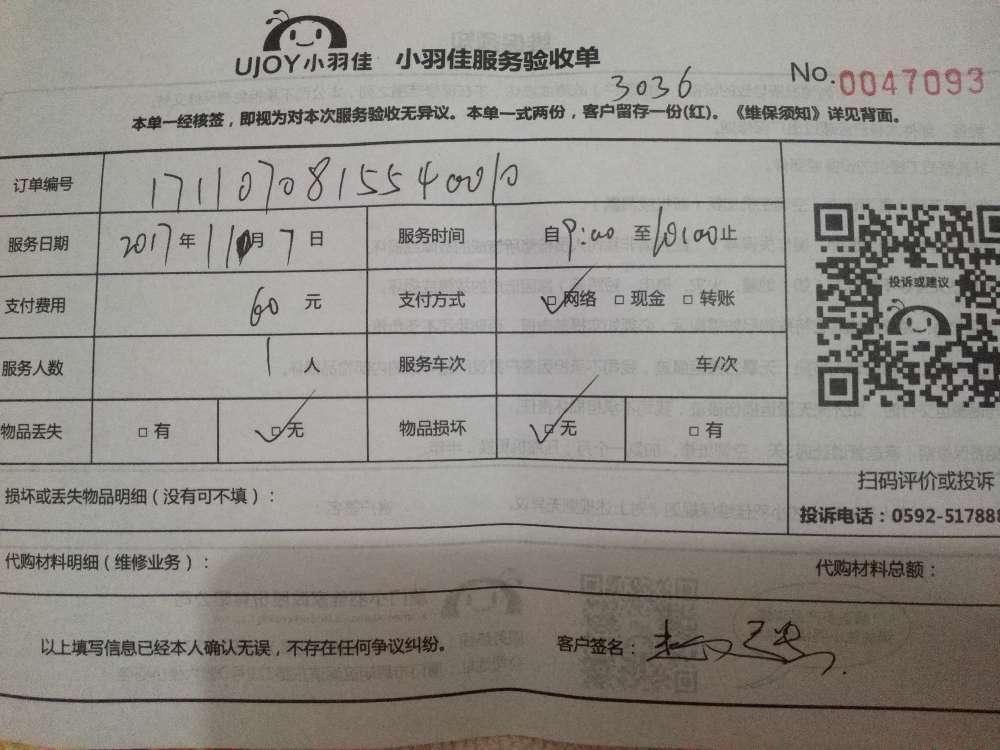 UJOY小羽佳 小羽佳服务验收单
No.0047093
3036
本单一经核签，即视为对本次服务验收无异议。本单一式两份，客户留存一份(红)。《维保须知》详见背面。
订单编号 1711070815540010
服务日期 2017年11月7日 服务时间 自9:00至10:00止
支付费用 60元 支付方式 ☑网络 □现金 □转账
服务人数 1人 服务车次 车/次
物品丢失 □有 ☑无 物品损坏 ☑无 □有
投诉或建议
扫码评价或投诉
投诉电话：0592-517888
损坏或丢失物品明细（没有可不填）：
代购材料明细（维修业务）： 代购材料总额：
以上填写信息已经本人确认无误，不存在任何争议纠纷。 客户签名：